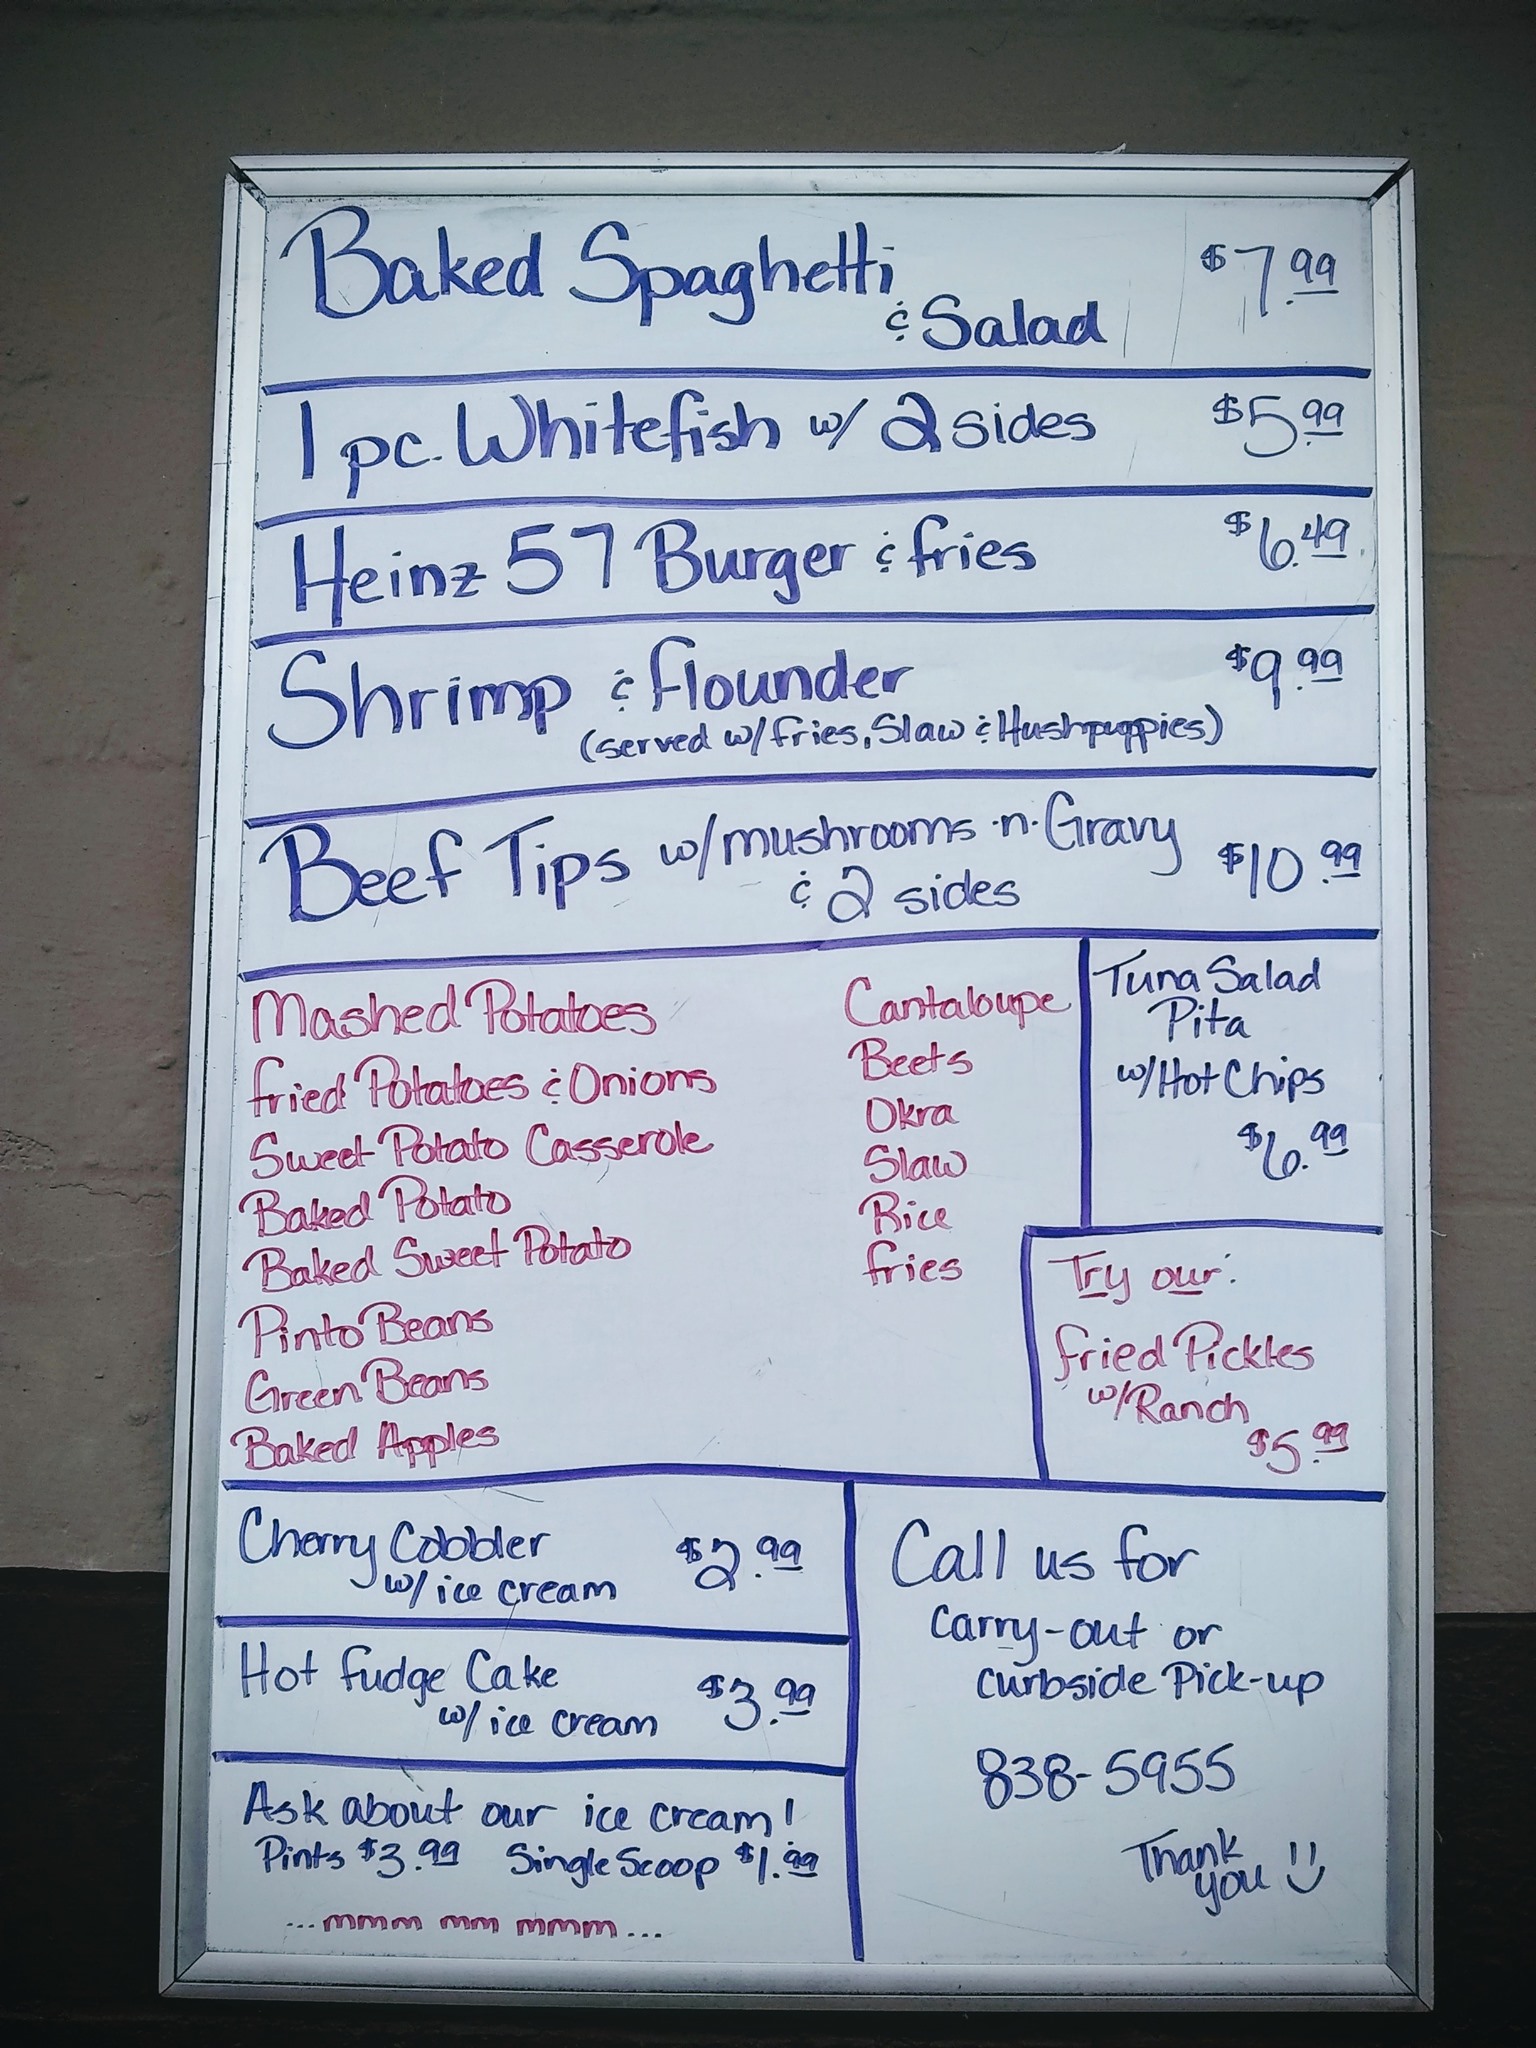 Baked Spaghetti
& Salad $7.99
1 pc. Whitefish w/ 2 sides $5.99
Heinz 57 Burger & fries $6.49
Shrimp & flounder $9.99
(served w/ fries, Slaw & Hushpuppies)
Beef Tips w/ mushrooms -n- Gravy
& 2 sides $10.99
Mashed Potatoes
fried Potatoes & Onions
Sweet Potato Casserole
Baked Potato
Baked Sweet Potato
Pinto Beans
Green Beans
Baked Apples
Cantaloupe
Beets
Okra
Slaw
Rice
fries
Tuna Salad
Pita
w/ Hot Chips
$6.99
Try our:
fried Pickles
w/ Ranch
$5.99
Cherry Cobbler
w/ ice cream $2.99
Hot fudge Cake
w/ ice cream $3.99
Ask about our ice cream!
Pints $3.99 Single Scoop $1.99
...mmm mm mmm...
Call us for
carry-out or
curbside Pick-up
838-5955
Thank
you